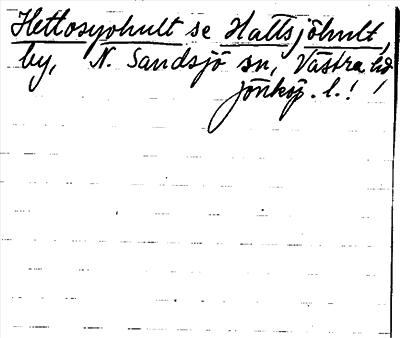 Hettosyohult se Hattsjöhult,
by, N. Sandsjö sn, Västra hd
jönköp. l.!